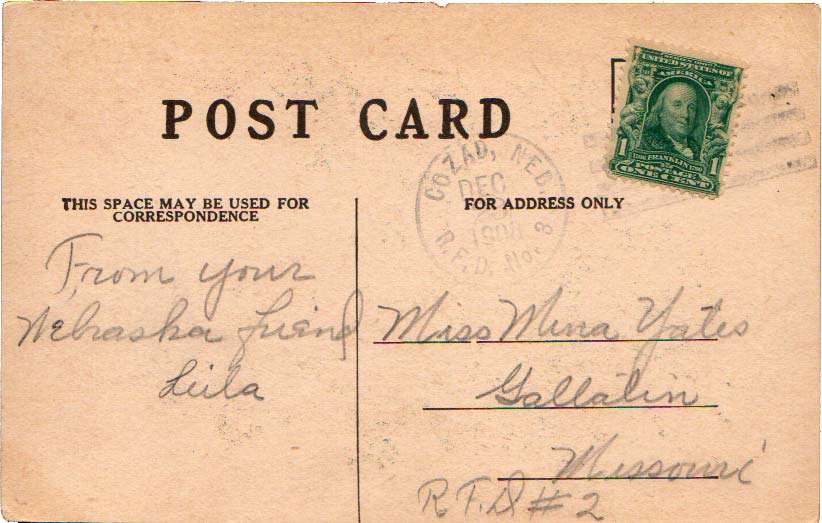 POST CARD
THIS SPACE MAY BE USED FOR
CORRESPONDENCE
FOR ADDRESS ONLY
UNITED STATES OF
AMERICA
1 1
FRANKLIN
POSTAGE
ONE CENT
COZAD, NEB.
DEC
1908
R.F.D. No. 3
From your
Nebraska friend
Leila
Miss Mina Yates
Gallatin
Missouri
R.F.D #2